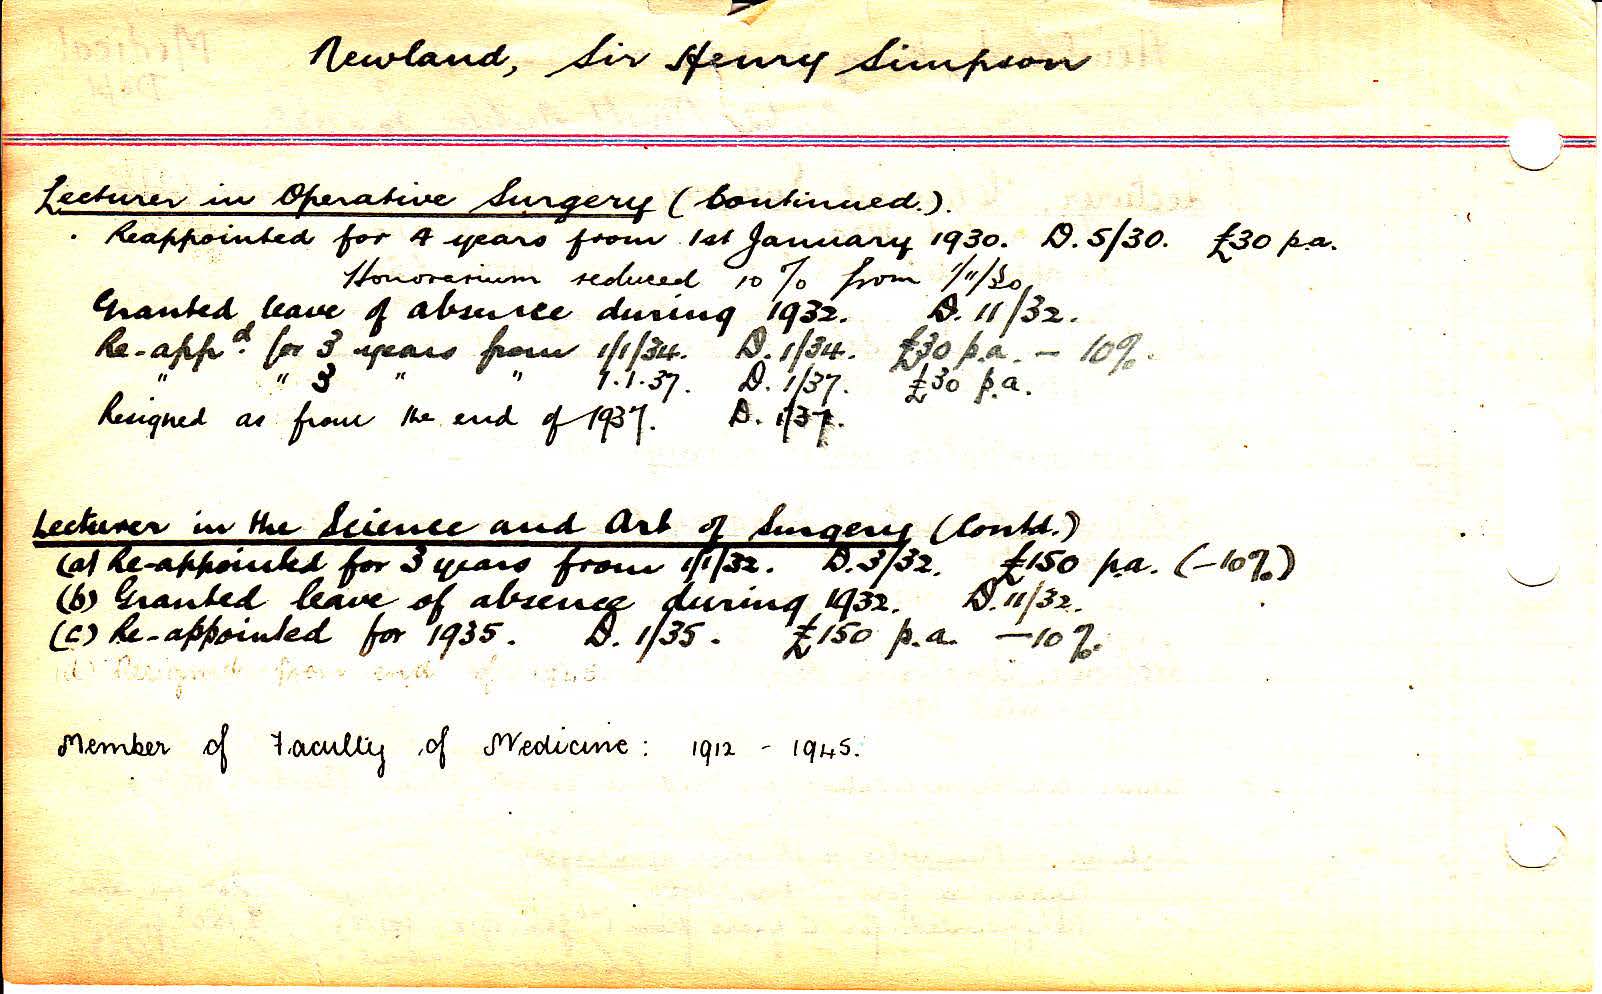 Newland, Sir Henry Simpson
Lecturer in Operative Surgery (Continued.).
Reappointed for 4 years from 1st January 1930. D. 5/30. £30 p.a.
Honorarium reduced 10% from 1/11/30
Granted leave of absence during 1932. D. 11/32.
Re-appd. for 3 years from 1/1/34. D. 1/34. £30 p.a. - 10%.
" " 3 " " 1.1.37. D. 1/37. £30 p.a.
Resigned as from the end of 1937. D. 1/37.
Lecturer in the Science and Art of Surgery (Contd.)
(a) Re-appointed for 3 years from 1/1/32. D. 3/32. £150 p.a. (-10%)
(b) Granted leave of absence during 1932. D. 11/32.
(c) Re-appointed for 1935. D. 1/35. £150 p.a. -10%.
Member of Faculty of Medicine: 1912 - 1945.